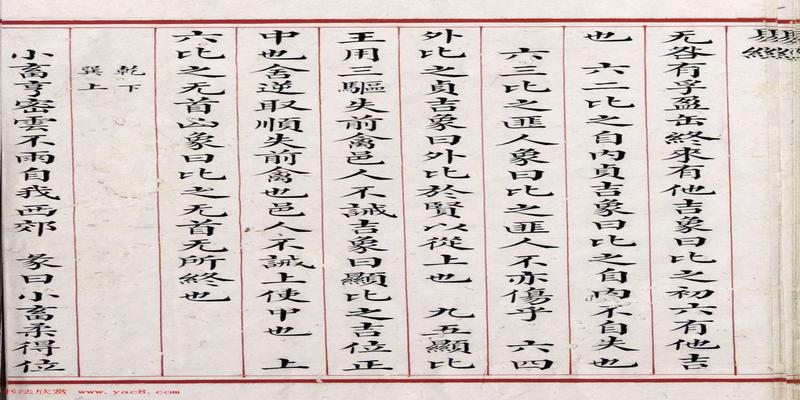 易經
无咎有孚盈缶終來有他吉象曰比之初六有他吉
也　六二比之自內貞吉象曰比之自內不自失也
六三比之匪人象曰比之匪人不亦傷乎　六四
外比之貞吉象曰外比於賢以從上也　九五顯比
王用三驅失前禽邑人不誡吉象曰顯比之吉位正
中也舍逆取順失前禽也邑人不誡上使中也　上
六比之无首凶象曰比之无首无所終也
乾下
巽上
小畜亨密雲不雨自我西郊　彖曰小畜柔得位
书法欣赏 www.yac8.com